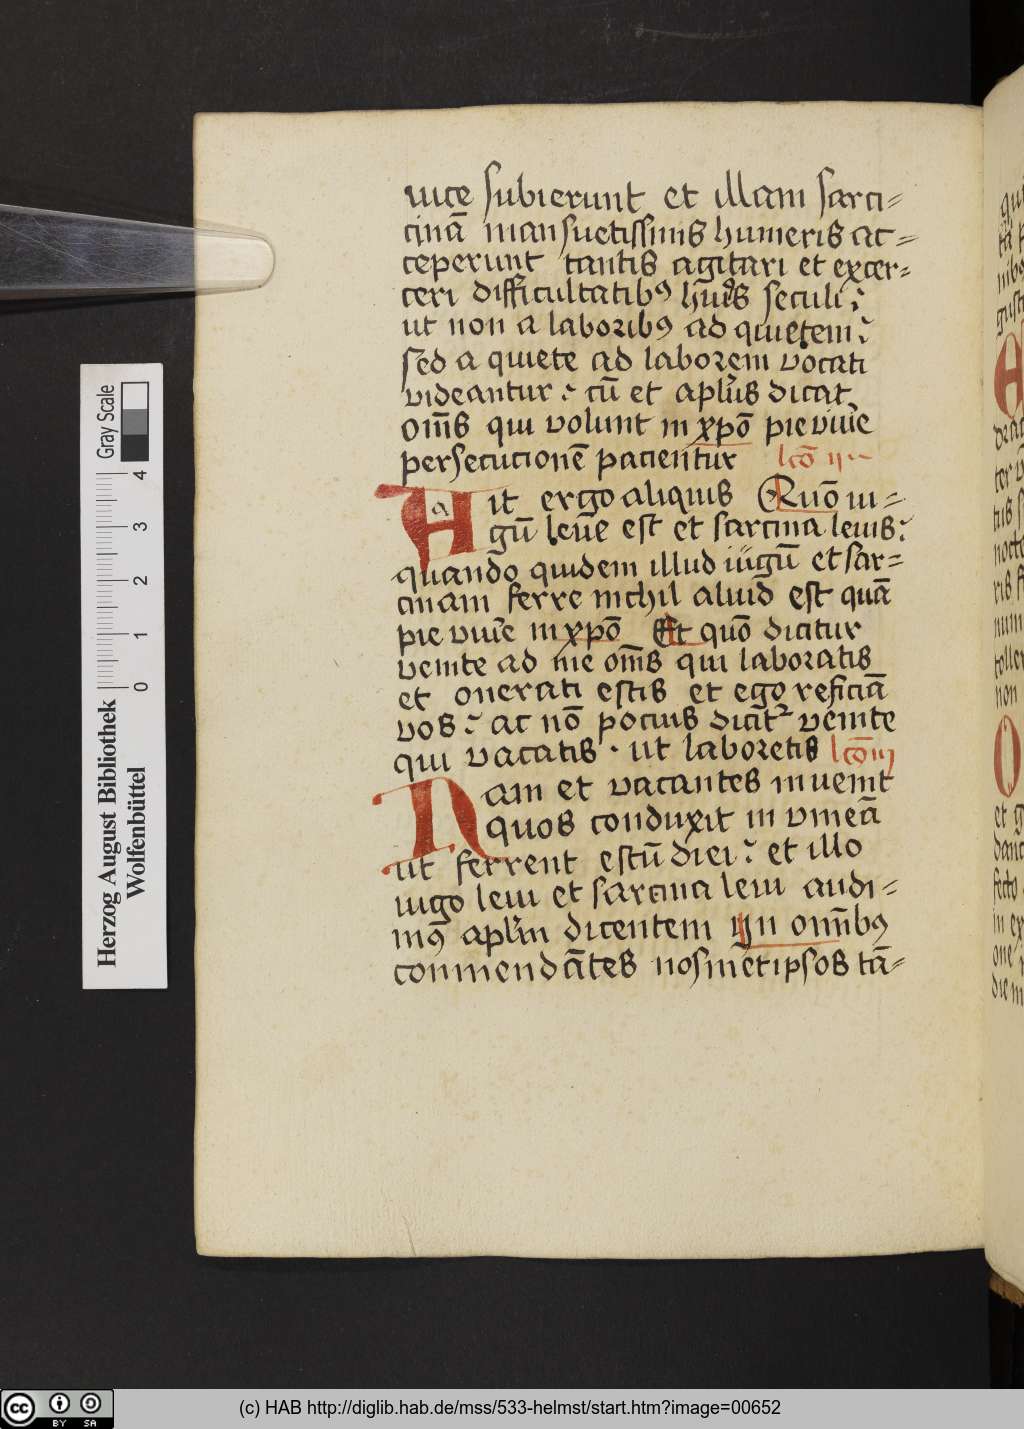 uice subierunt et illam sarci=
cinā mansuetissimis humeris ac=
ceperunt tantis agitari et exer=
ceri difficultatibꝰ hui9 seculi.
ut non a laboribꝰ ad quietem.
sed a quiete ad laborem vocati
videantur. cū et aplūs dicat
Om̄s qui volunt in xpō pie viue͞
persecucionē pacientur lcō ij
Ait ergo aliquis Quō iu=
gū leue͞ est et sarcina leuis.
quando quidem illud iugū et sar=
cinam ferre nichil aliud est quā
pie viue͞ in xpō Et quō dicitur
venite ad me om̄s qui laboratis
et onerati estis et ego reficiā
vos. ac nō pocius dicit᷑ venite
qui vacatis. ut laboretis lcō iij
Nam et vacantes inuenit
quos conduxit in vineā
ut ferrent estū diei. et illo
iugo leui et sarcina leui audi=
mꝰ aplūm dicentem Jn om̄ibꝰ
conmendātes nosmetipsos tā=
Herzog August Bibliothek
Wolfenbüttel
Gray Scale
0 1 2 3 4
cc BY SA
(c) HAB http://diglib.hab.de/mss/533-helmst/start.htm?image=00652